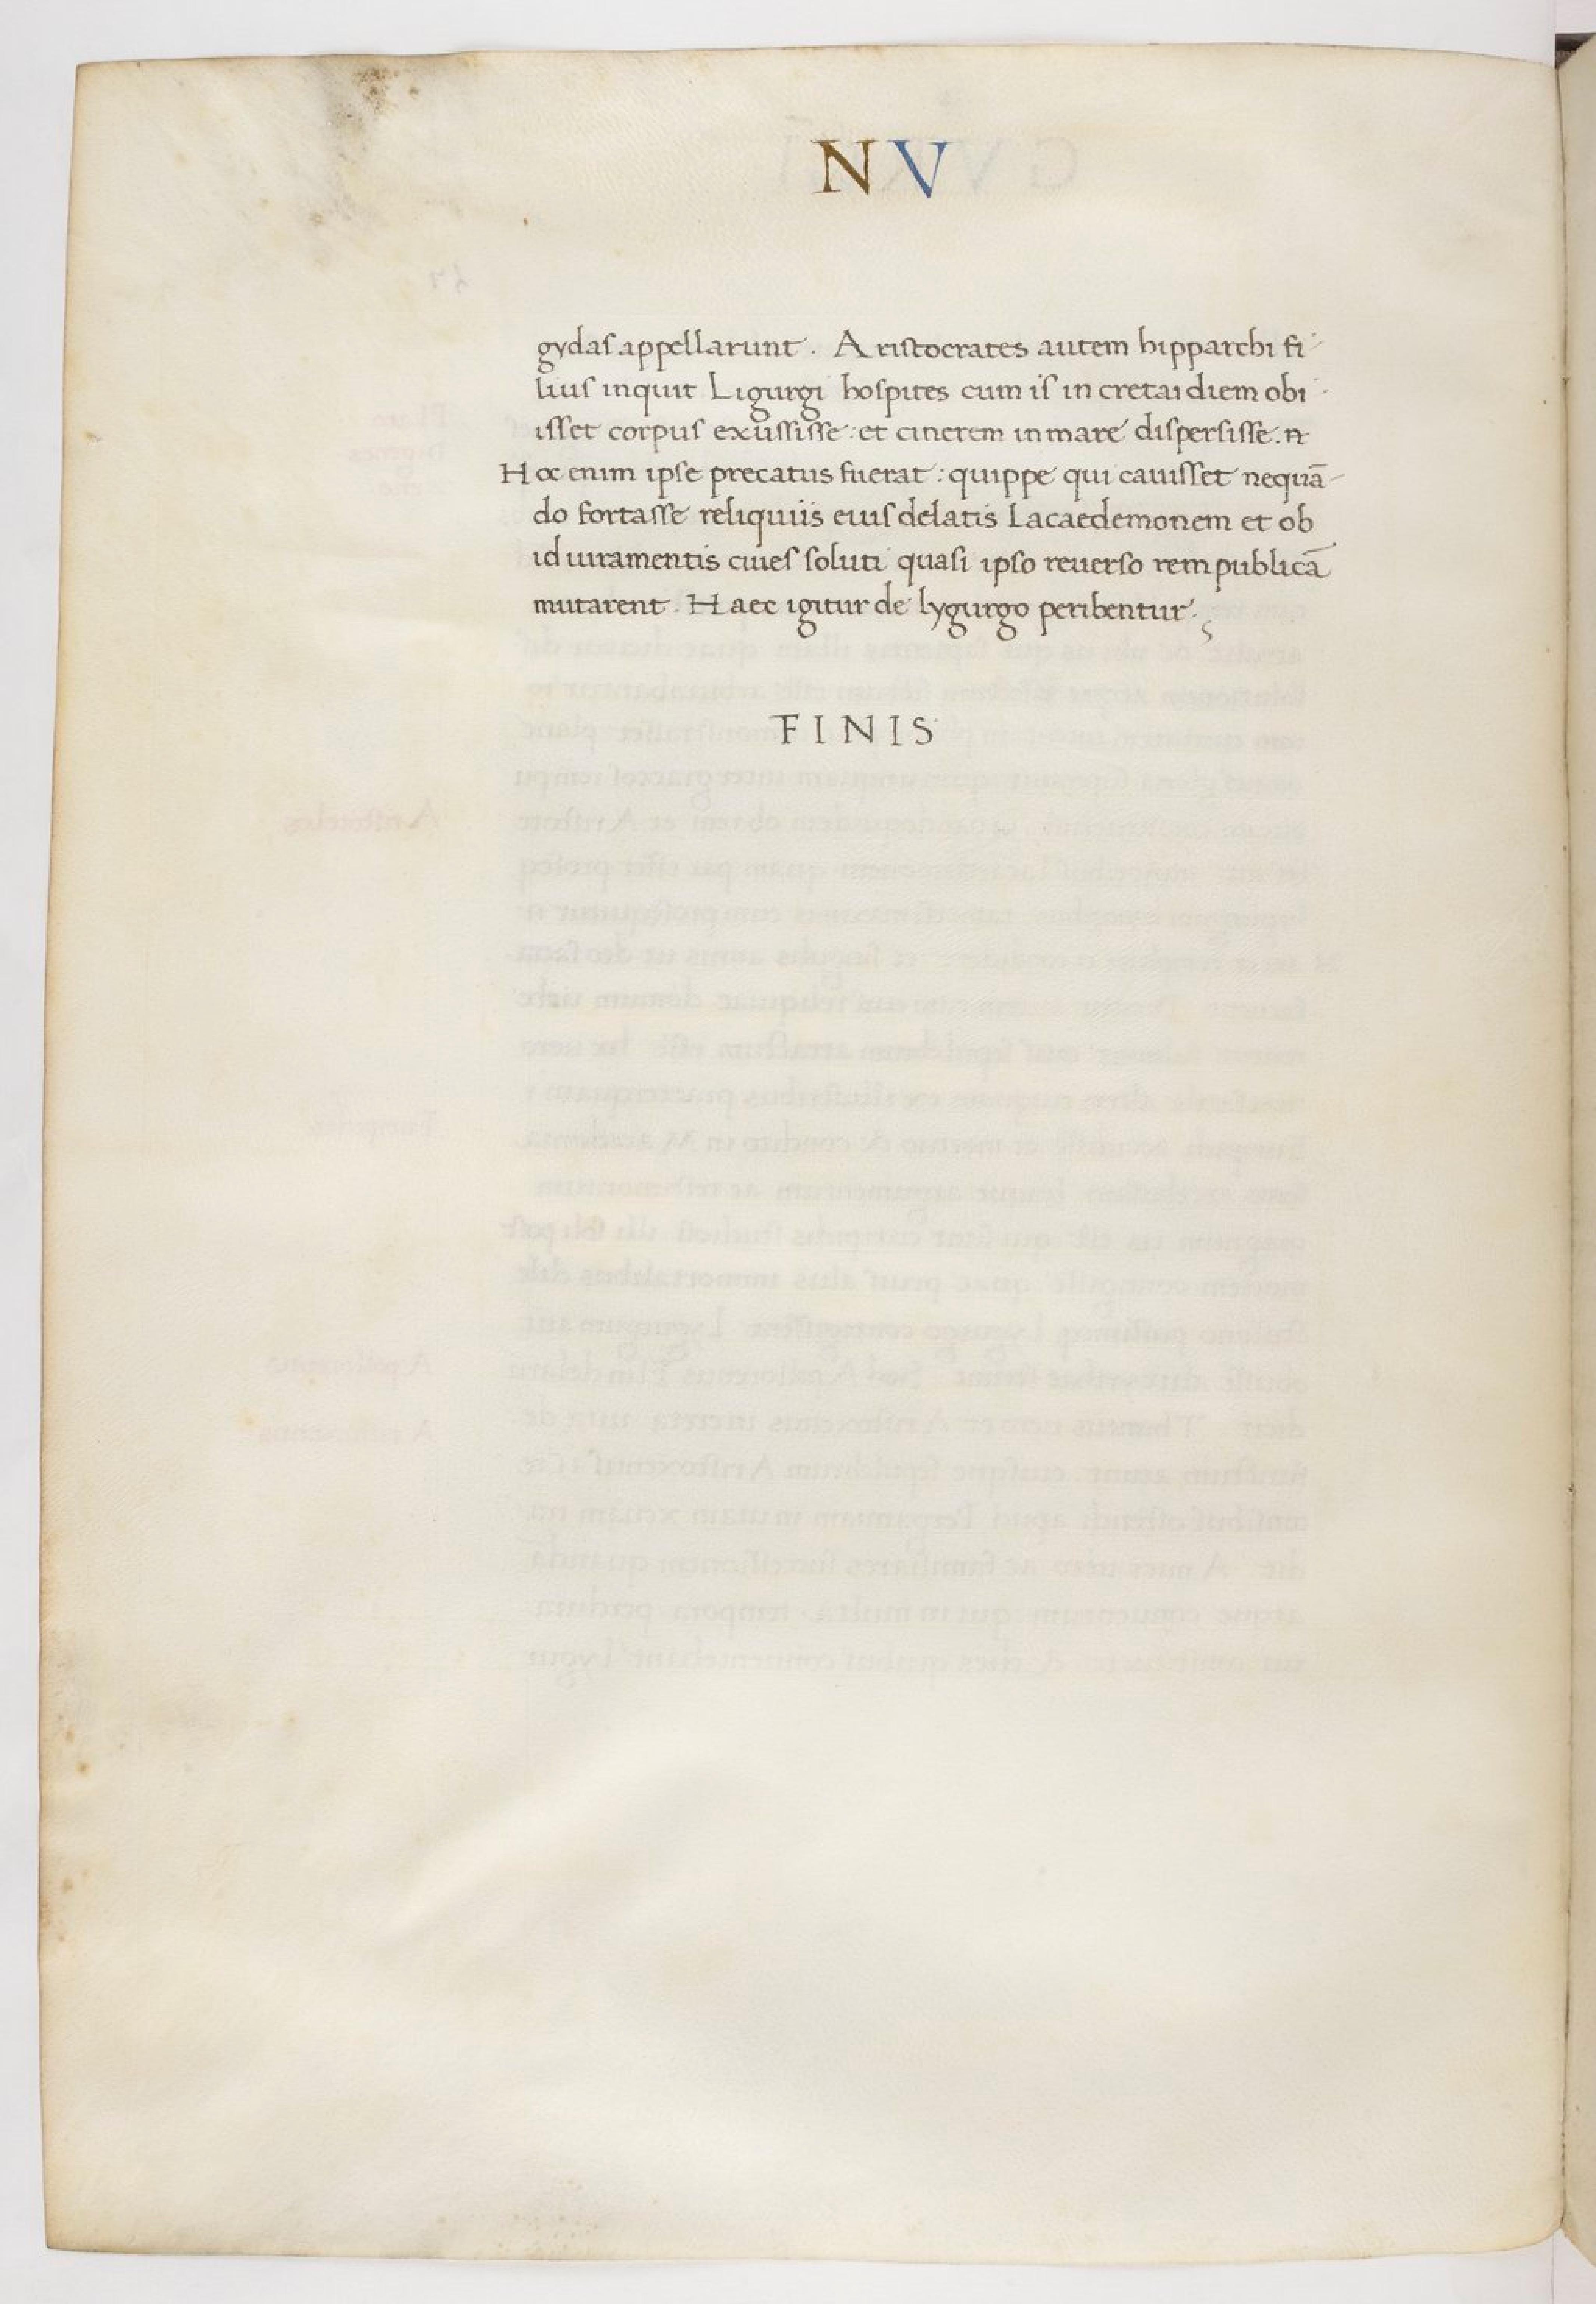 N V
gydas appellarunt. Aristocrates autem hipparchi fi-
lius inquit Ligurgi hospites cum is in cretai diem obi-
isset corpus exussisse: et cinerem in mare dispersisse. n
Hoc enim ipse precatus fuerat: quippe qui cauisset nequā-
do fortasse reliquiis eius delatis Lacaedemonem et ob
id iuramentis ciues soluti quasi ipso reuerso rem publicā
mutarent. Haec igitur de lygurgo peribentur.
FINIS